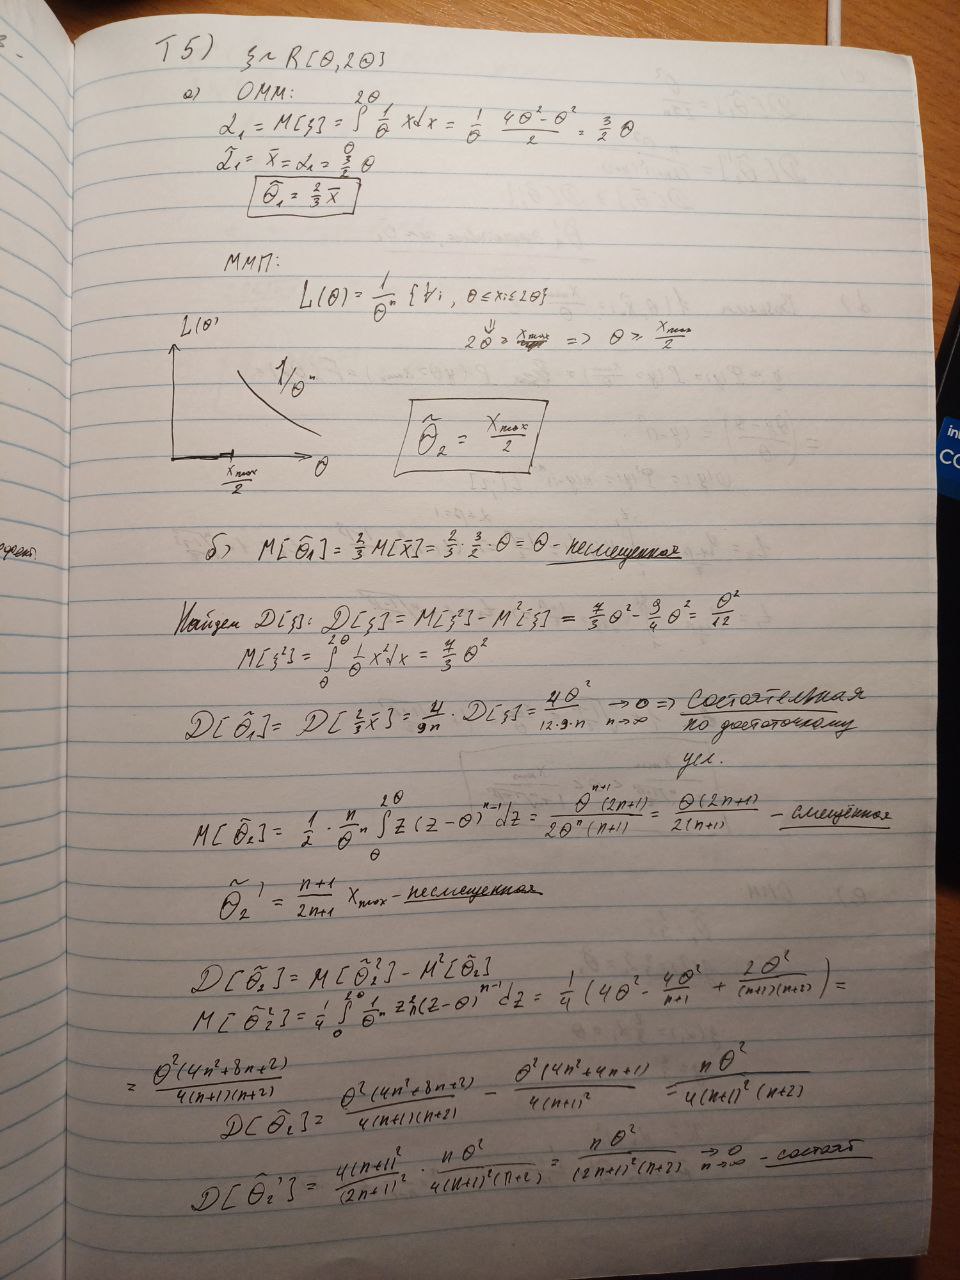 T5) ξ ~ R[θ, 2θ]
а) ОММ:
α₁ = M[ξ] = ∫_θ^{2θ} 1/θ x dx = 1/θ (4θ² - θ²)/2 = 3/2 θ
α̃₁ = x̄ = α₁ = 3/2 θ
θ̃₁ = 2/3 x̄
ММП:
L(θ) = 1/θⁿ {∀i, θ ≤ xi ≤ 2θ}
⇓
2θ ≥ xmax => θ ≥ xmax/2
L(θ)
1/θⁿ
θ̃₂ = xmax/2
xmax/2
θ
б) M[θ̃₁] = 2/3 M[x̄] = 2/3 · 3/2 · θ = θ - несмещенная
Найдем D[ξ]: D[ξ] = M[ξ²] - M²[ξ] = 7/3 θ² - 9/4 θ² = θ²/12
M[ξ²] = ∫_θ^{2θ} 1/θ x² dx = 7/3 θ²
D[θ̃₁] = D[2/3 x̄] = 4/9n · D[ξ] = 4θ²/(12·9·n) → 0 n→∞ => Состоятельная
по достаточному
усл.
M[θ̃₂] = 1/2 · n/θⁿ ∫_θ^{2θ} z(z-θ)ⁿ⁻¹ dz = θⁿ⁺¹(2n+1)/(2θⁿ(n+1)) = θ(2n+1)/(2(n+1)) - смещённая
θ̃₂' = (n+1)/(2n+1) xmax - несмещенная
D[θ̃₂] = M[θ̃₂²] - M²[θ̃₂]
M[θ̃₂²] = 1/4 ∫_θ^{2θ} 1/θⁿ z² n(z-θ)ⁿ⁻¹ dz = 1/4 (4θ² - 4θ²/(n+1) + 2θ²/((n+1)(n+2))) =
= θ²(4n²+8n+2)/(4(n+1)(n+2))
D[θ̃₂] = θ²(4n²+8n+2)/(4(n+1)(n+2)) - θ²(4n²+4n+1)/(4(n+1)²) = nθ²/(4(n+1)²(n+2))
D[θ̃₂'] = 4(n+1)²/(2n+1)² · nθ²/(4(n+1)²(n+2)) = nθ²/((2n+1)²(n+2)) → 0 n→∞ - состоят